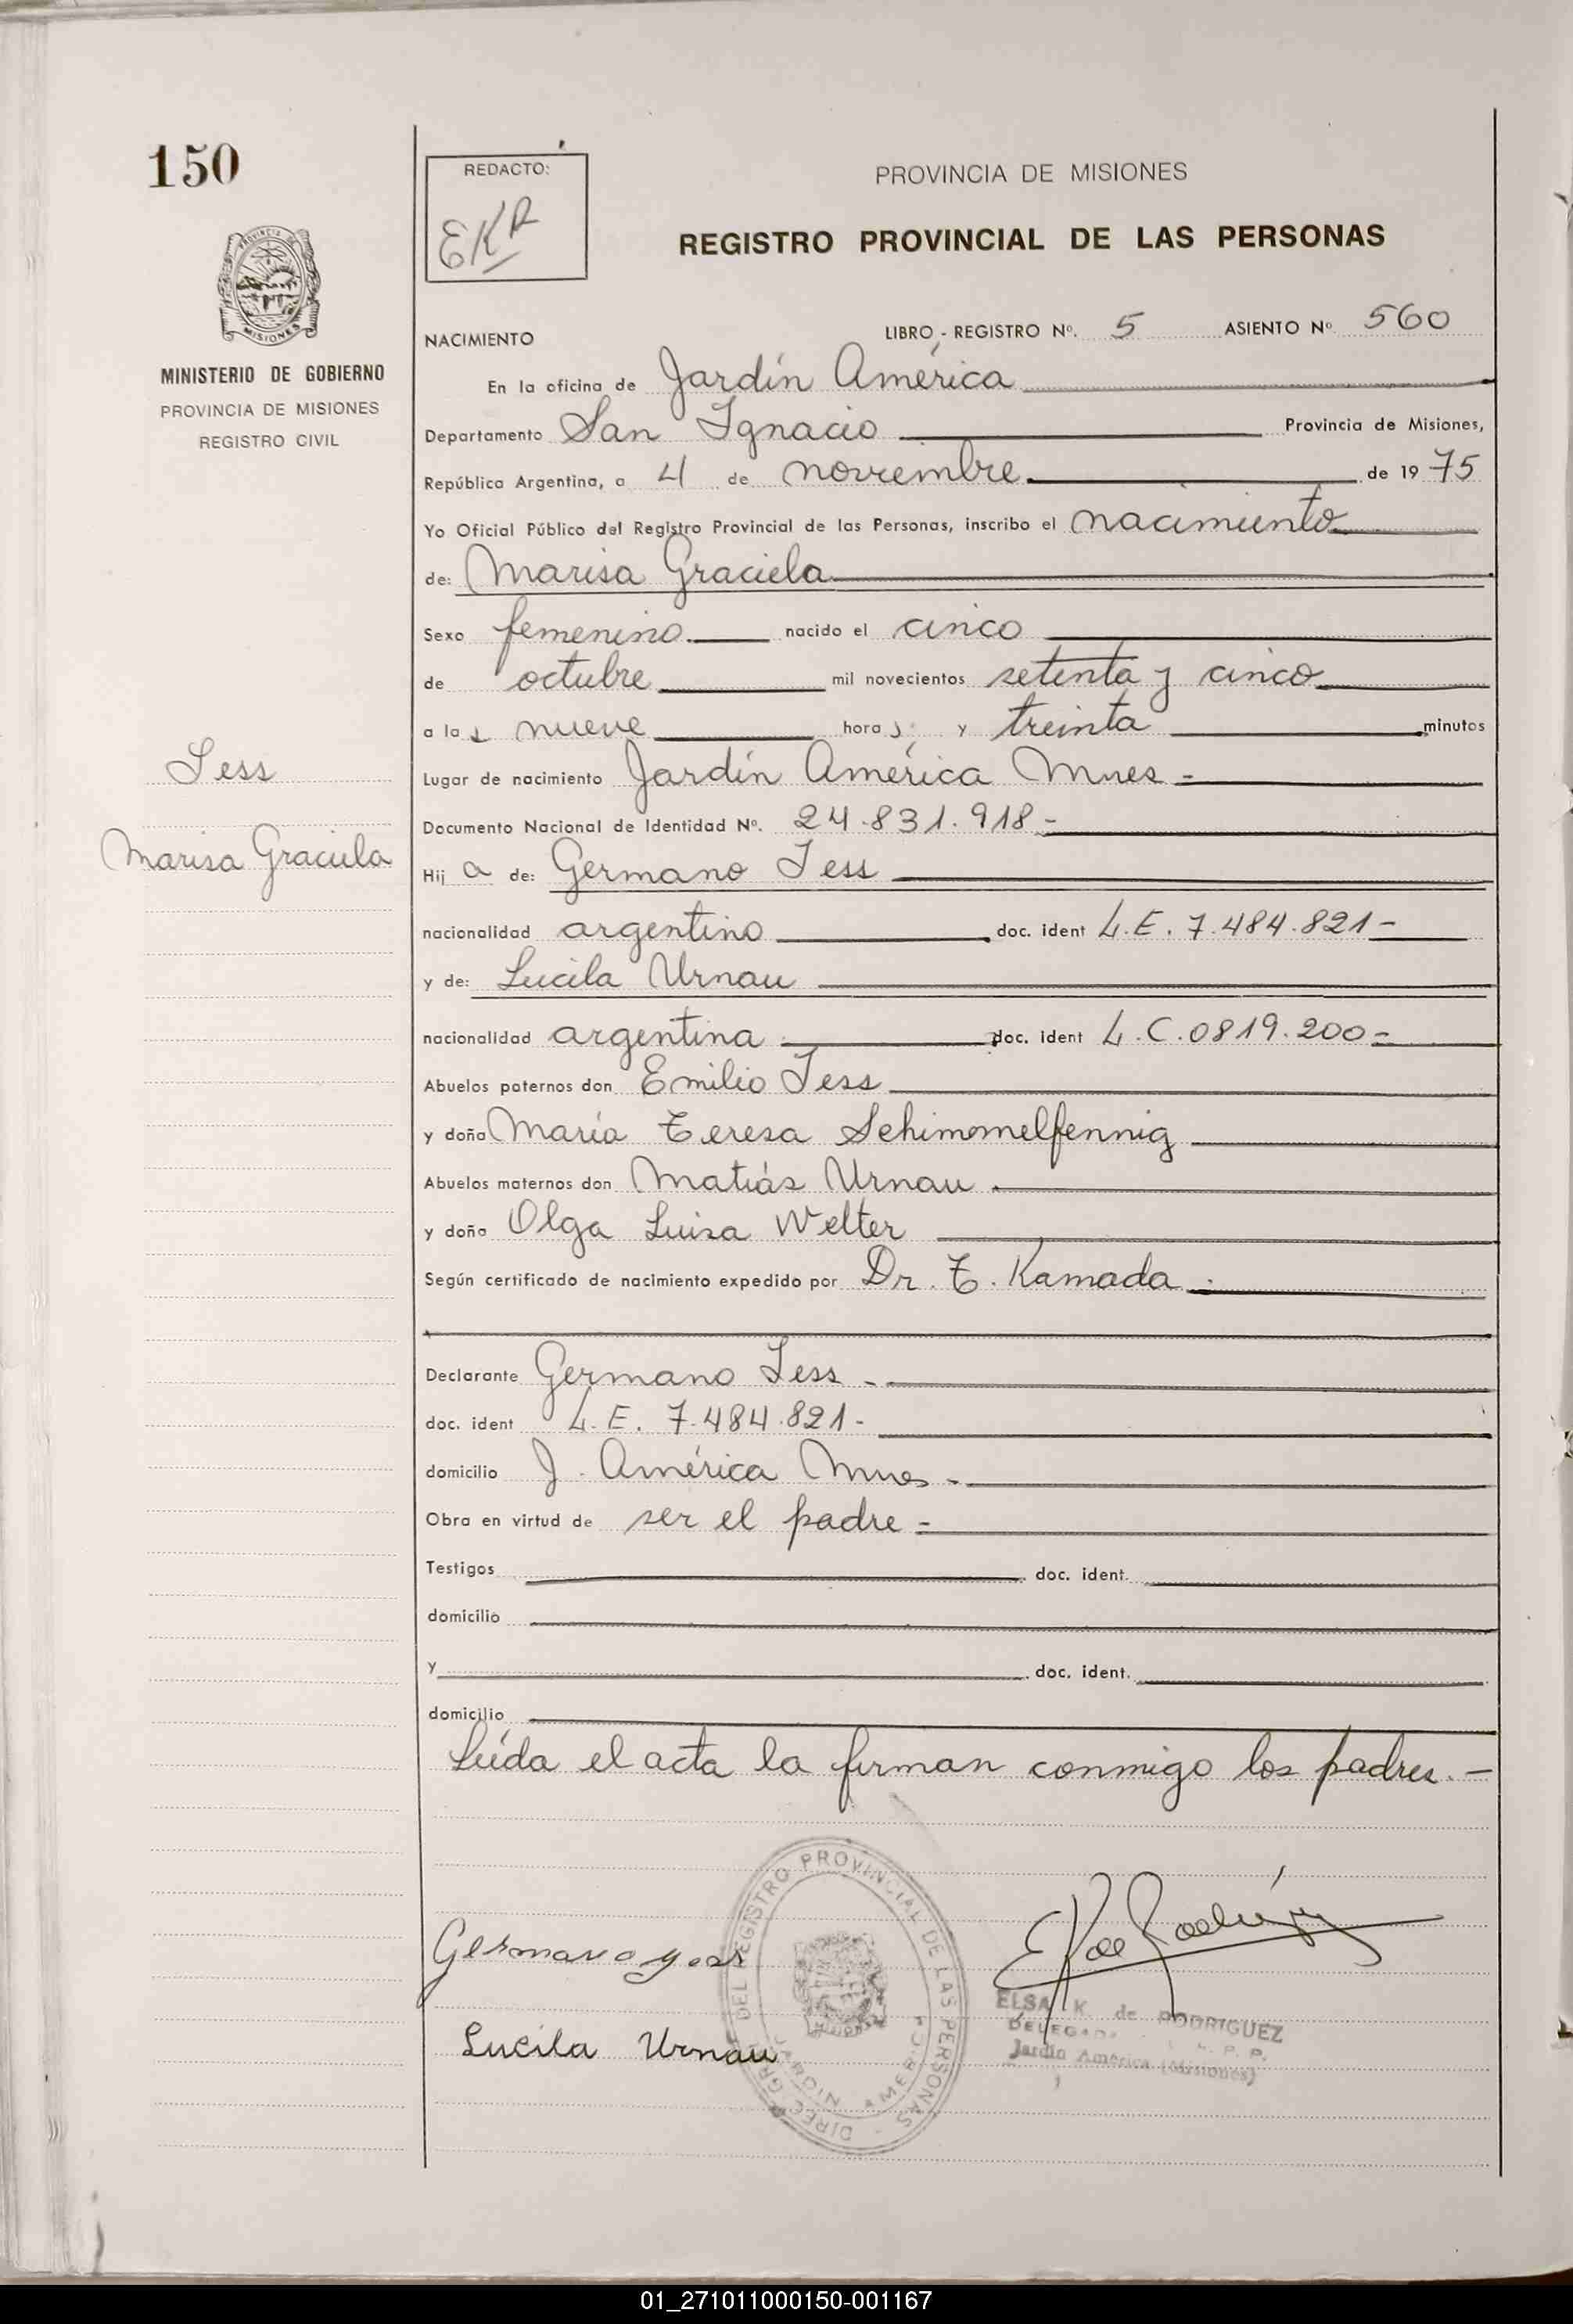 150
REDACTO:
EKR
PROVINCIA DE MISIONES
REGISTRO PROVINCIAL DE LAS PERSONAS
PROVINCIA DE MISIONES
MINISTERIO DE GOBIERNO
PROVINCIA DE MISIONES
REGISTRO CIVIL
NACIMIENTO LIBRO - REGISTRO Nº. 5 ASIENTO Nº 560
En la oficina de Jardín América
Departamento San Ignacio Provincia de Misiones,
República Argentina, a 4 de noviembre de 19 75
Yo Oficial Público del Registro Provincial de las Personas, inscribo el nacimiento
de: Marisa Graciela
Sexo femenino. nacido el cinco
de octubre mil novecientos setenta y cinco
a las nueve horas y treinta minutos
Iess
Lugar de nacimiento Jardín América Mnes -
Documento Nacional de Identidad Nº. 24.831.918-
Marisa Graciela
Hij a de: Germano Iess
nacionalidad argentino doc. ident L.E. 7.484.821-
y de: Lucila Urnau
nacionalidad argentina doc. ident L.C. 0819.200-
Abuelos paternos don Emilio Iess
y doña María Teresa Schimomelfennig
Abuelos maternos don Matías Urnau.
y doña Olga Luisa Welter
Según certificado de nacimiento expedido por Dr. T. Kamada.
Declarante Germano Iess -
doc. ident L.E. 7.484.821-
domicilio J. América Mnes-
Obra en virtud de ser el padre-
Testigos doc. ident.
domicilio
y doc. ident.
domicilio
Leída el acta la firman conmigo los padres.-
DIREC. GRAL. DEL REGISTRO PROVINCIAL DE LAS PERSONAS
JARDIN AMERICA
Germano yess
EK de Rodríguez
ELSA K. de RODRIGUEZ
DELEGADA R. P. P.
Jardín América (Misiones)
Lucila Urnau
01_271011000150-001167